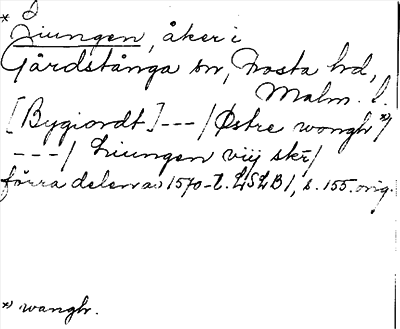 * Liungen, åker i
Gårdstånga sn, Frosta hd,
Malm. l.
[Bygiordt] --- / Østre wongh *)
--- / Liungen viij skr/
förra delen av 1570-t. LSLB1, s. 155. orig.
*) wangh.